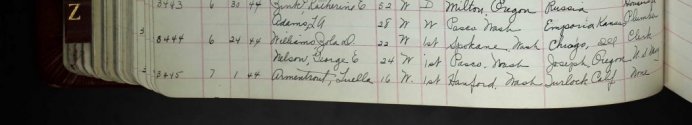 Z
3443 6 30 44 Funk, Katherine E 52 W D Milton, Oregon Russia Housewife
Adams, T A 28 W W Pasco Wash Emporia Kansas Plumber
8444 6 24 44 Williams, Zola D. 22 W 1st Spokane, Wash Chicago, Ill Clerk
Nelson, George E 24 W 1st Pasco. Wash Joseph Oregon U.S. Navy
8445 7 1 44 Armentrout, Luella 16 W. 1st Hanford. Wash Turlock Calif None